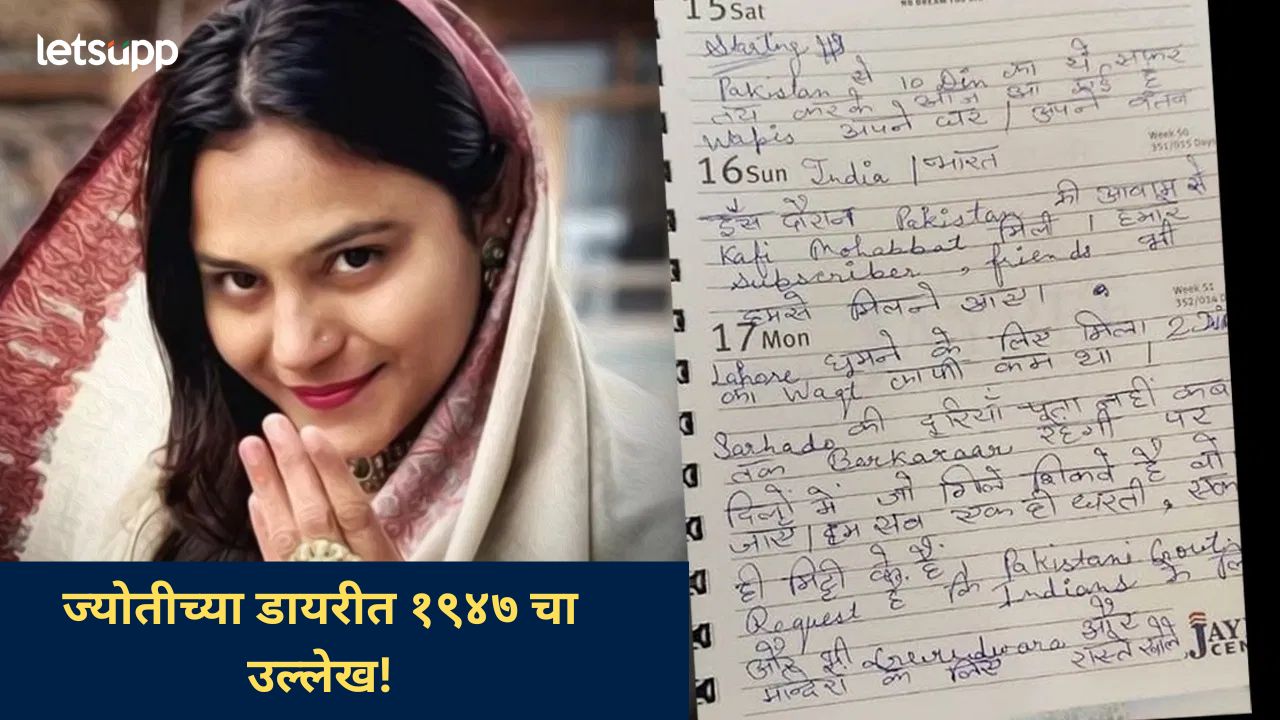 letsupp
ज्योतीच्या डायरीत १९४७ चा
उल्लेख!
15 Sat
Starting
Pakistan से 10 Din का ये सफ़र
तय करके आज आ गई है
Wapis अपने घर / अपने वतन
Week 50
16 Sun India / भारत
इस दौरान Pakistan की आवाम से
Kafi Mohabbat मिली । हमारे
Subscriber, friends भी
हमसे मिलने आए।
Week 51
17 Mon
Lahore घुमने के लिए मिला 2 Din
का Waqt काफी कम था ।
Sarhado की दूरियाँ पता नहीं कब
तक Barkaraar रहेगी पर
दिलों में जो गिले शिकवे है वो
जाए। हम सब एक ही धरती, एक
ही मिट्टी के है।
Pakistani Govt.
Request है कि Indians के लि
और भी Gurudwara और
मन्दिरों के लिए रास्ते खोले
JAY
CEN